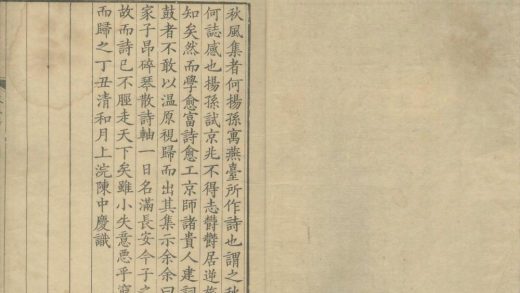 秋風集者何楊孫寓燕臺所作詩也謂之秋
何誌感也楊孫試京兆不得志欝欝居逆旅
知矣然而學愈富詩愈工京師諸貴人建詞
鼓者不敢以溫原視歸而出其集示余余曰
家子昂碎琴散詩軸一日名滿長安今子之
故而詩已不脛走天下矣雖小失意悪乎窮
而歸之丁丑清和月上浣陳中慶識